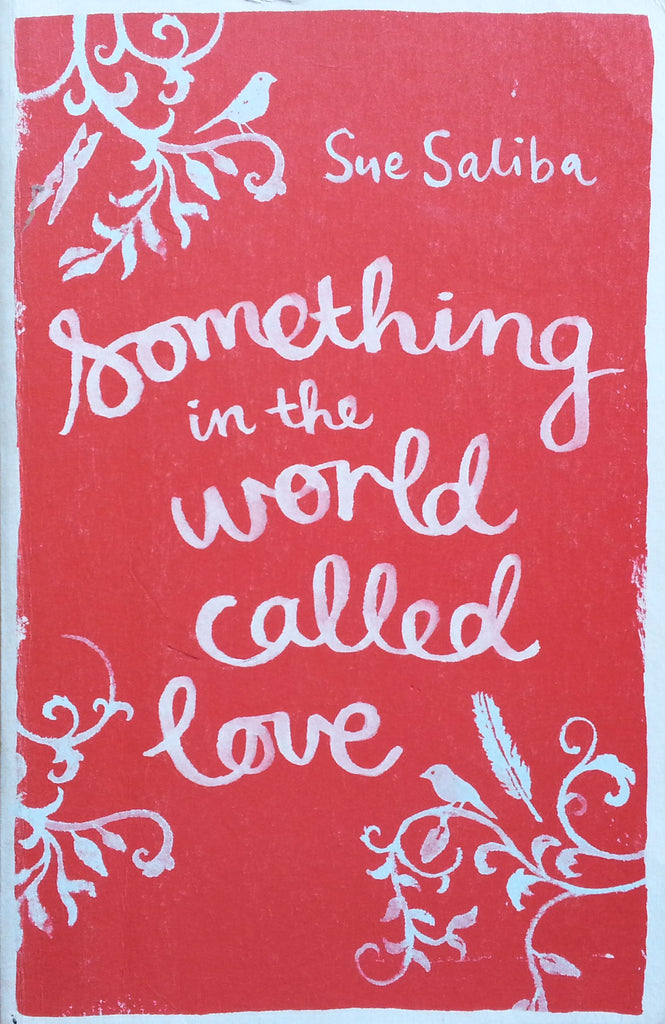 Sue Saliba
Something
in the
world
called
love